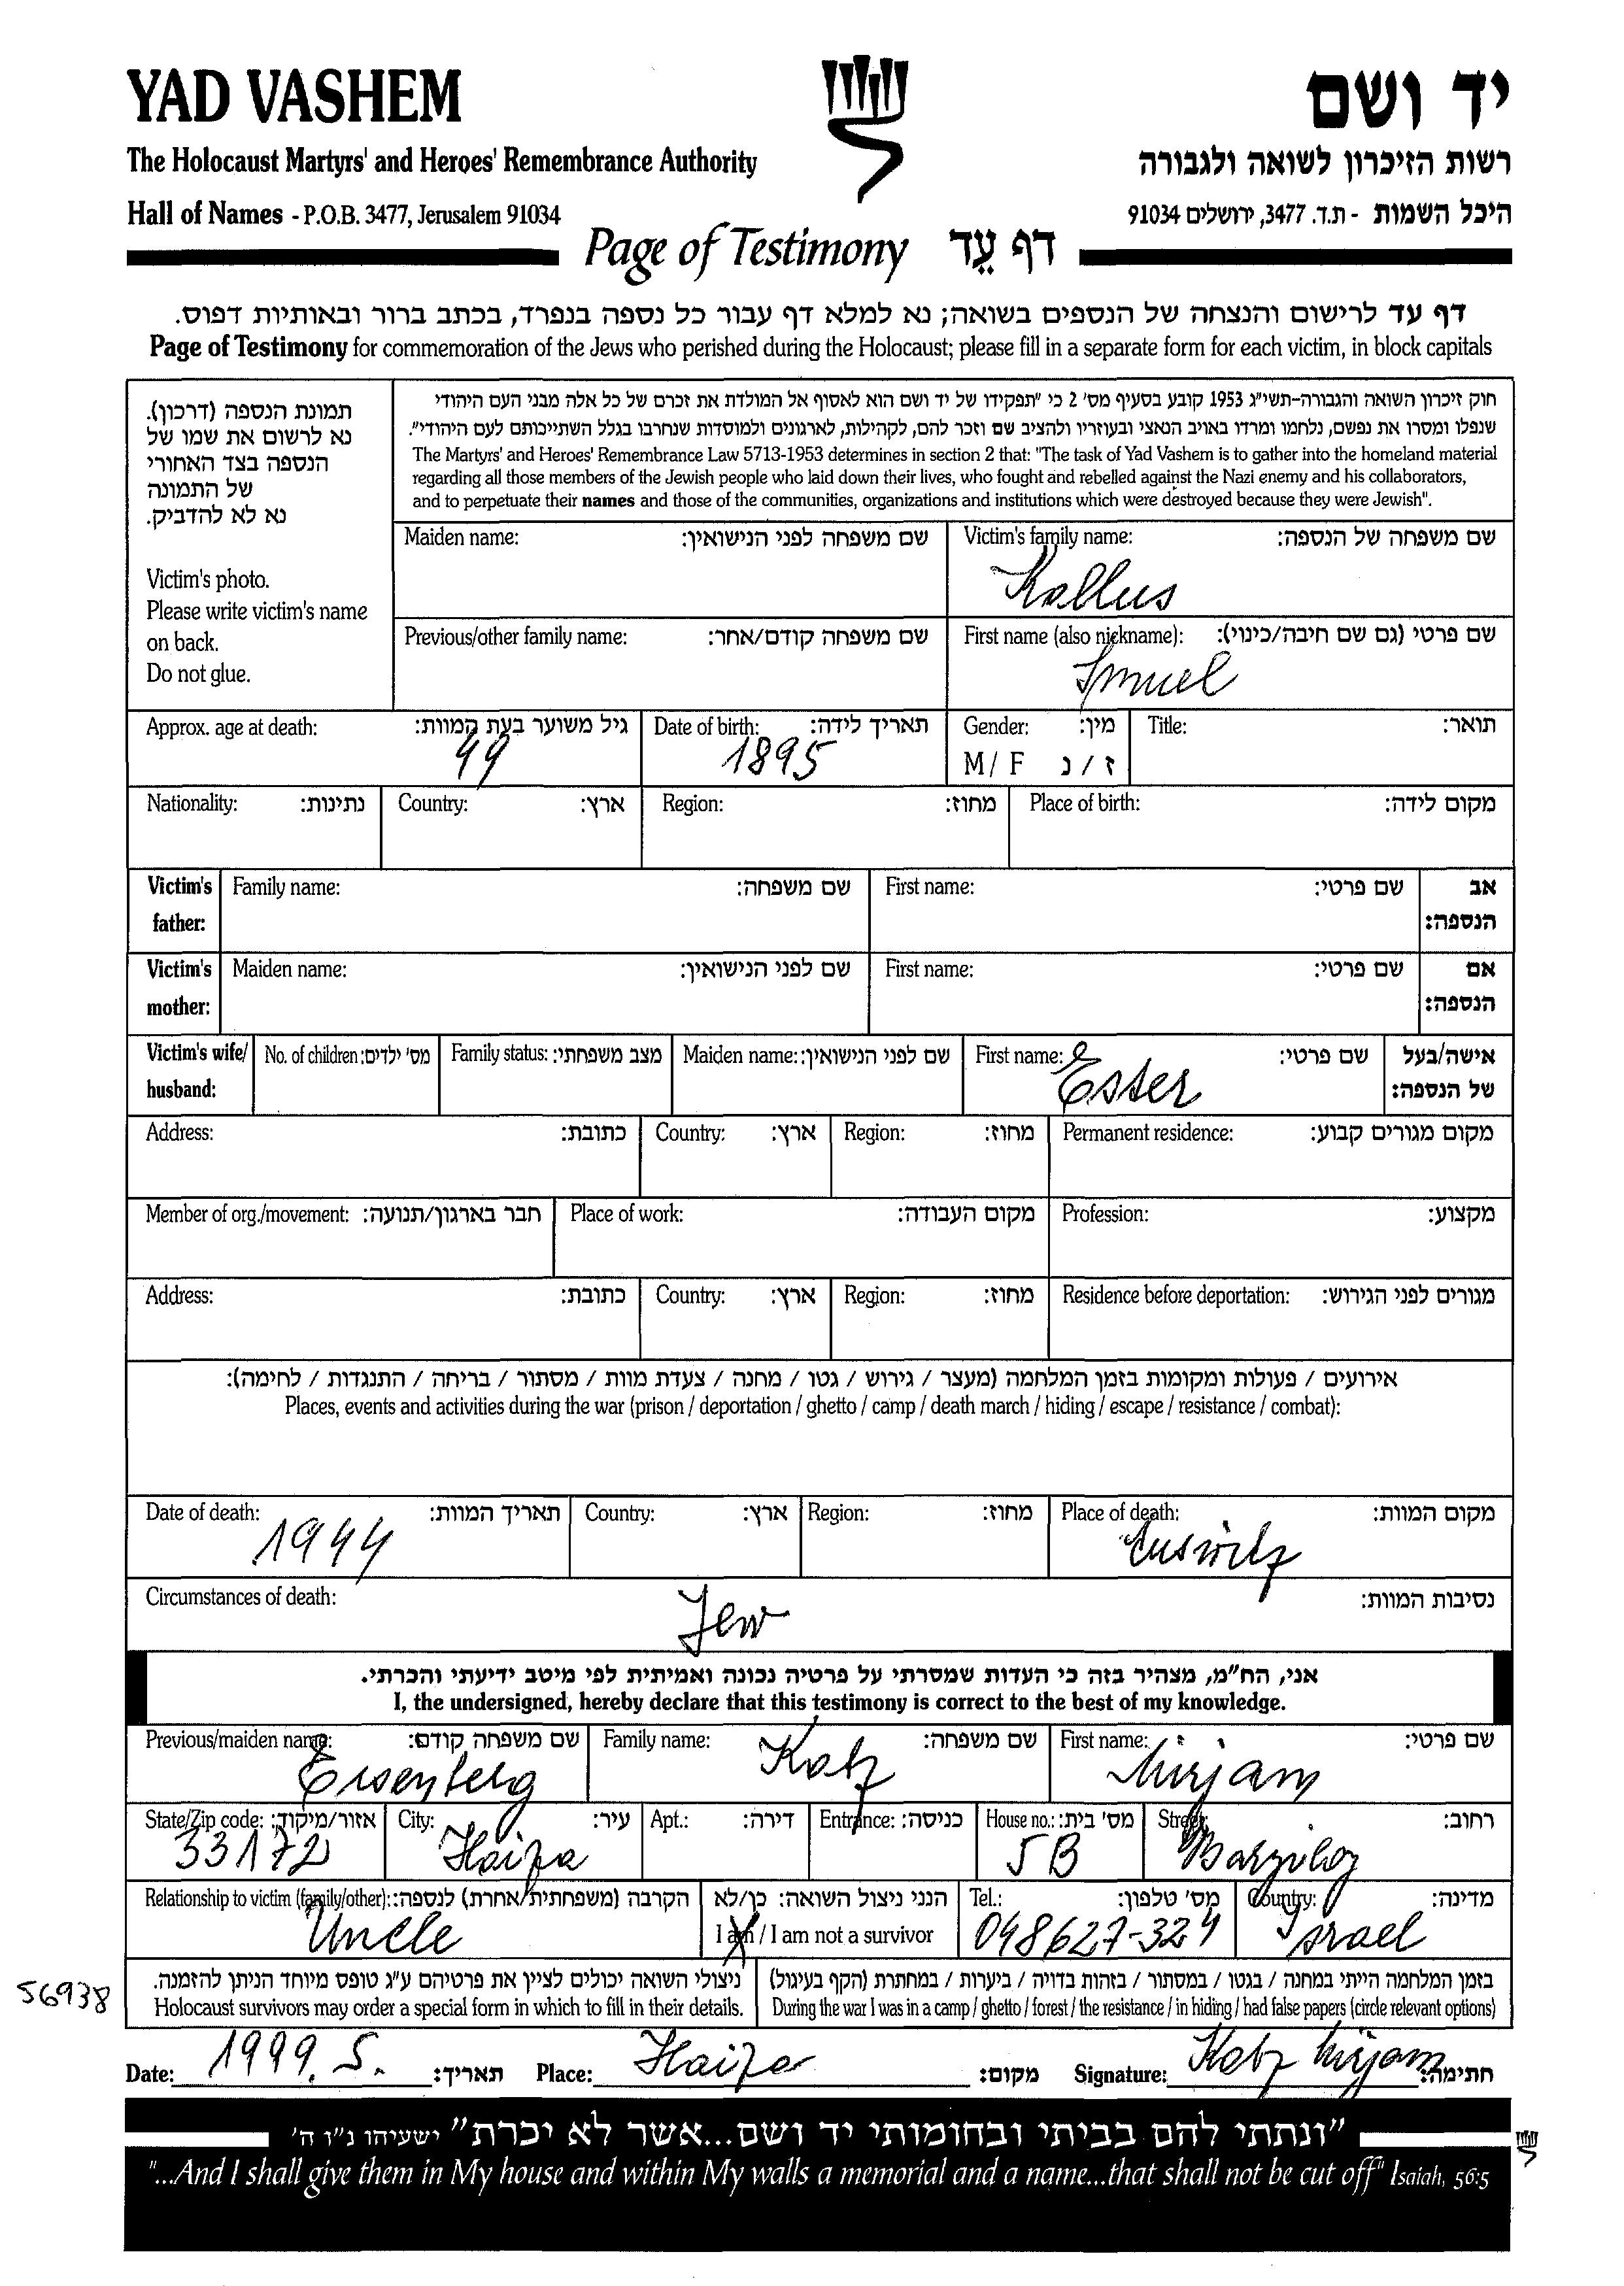 YAD VASHEM
יד ושם
The Holocaust Martyrs' and Heroes' Remembrance Authority
רשות הזיכרון לשואה ולגבורה
Hall of Names - P.O.B. 3477, Jerusalem 91034
היכל השמות - ת.ד. 3477, ירושלים 91034
Page of Testimony דף עֵד
דף עד לרישום והנצחה של הנספים בשואה; נא למלא דף עבור כל נספה בנפרד, בכתב ברור ובאותיות דפוס.
Page of Testimony for commemoration of the Jews who perished during the Holocaust; please fill in a separate form for each victim, in block capitals
תמונת הנספה (דרכון).
נא לרשום את שמו של
הנספה בצד האחורי
של התמונה
נא לא להדביק.
Victim's photo.
Please write victim's name
on back.
Do not glue.
חוק זיכרון השואה והגבורה-תשי"ג 1953 קובע בסעיף מס' 2 כי "תפקידו של יד ושם הוא לאסוף אל המולדת את זכרם של כל אלה מבני העם היהודי
שנפלו ומסרו את נפשם, נלחמו ומרדו באויב הנאצי ובעוזריו ולהציב שם וזכר להם, לקהילות, לארגונים ולמוסדות שנחרבו בגלל השתייכותם לעם היהודי".
The Martyrs' and Heroes' Remembrance Law 5713-1953 determines in section 2 that: "The task of Yad Vashem is to gather into the homeland material
regarding all those members of the Jewish people who laid down their lives, who fought and rebelled against the Nazi enemy and his collaborators,
and to perpetuate their names and those of the communities, organizations and institutions which were destroyed because they were Jewish".
Maiden name: שם משפחה לפני הנישואין: Victim's family name: שם משפחה של הנספה:
Kallus
Previous/other family name: שם משפחה קודם/אחר: First name (also nickname): שם פרטי (גם שם חיבה/כינוי):
Smuel
Approx. age at death: גיל משוער בעת המוות: Date of birth: תאריך לידה: Gender: מין: Title: תואר:
49 1895 M / F ז / נ
Nationality: נתינות: Country: ארץ: Region: מחוז: Place of birth: מקום לידה:
Victim's Family name: שם משפחה: First name: שם פרטי: אב
father: הנספה:
Victim's Maiden name: שם לפני הנישואין: First name: שם פרטי: אם
mother: הנספה:
Victim's wife/ No. of children: מס' ילדים: Family status: מצב משפחתי: Maiden name: שם לפני הנישואין: First name: שם פרטי: אישה/בעל
husband: Ester של הנספה:
Address: כתובת: Country: ארץ: Region: מחוז: Permanent residence: מקום מגורים קבוע:
Member of org./movement: חבר בארגון/תנועה: Place of work: מקום העבודה: Profession: מקצוע:
Address: כתובת: Country: ארץ: Region: מחוז: Residence before deportation: מגורים לפני הגירוש:
אירועים / פעולות ומקומות בזמן המלחמה (מעצר / גירוש / גטו / מחנה / צעדת מוות / מסתור / בריחה / התנגדות / לחימה):
Places, events and activities during the war (prison / deportation / ghetto / camp / death march / hiding / escape / resistance / combat):
Date of death: תאריך המוות: Country: ארץ: Region: מחוז: Place of death: מקום המוות:
1944 Auswitz
Circumstances of death: נסיבות המוות:
Jew
אני, הח"מ, מצהיר בזה כי העדות שמסרתי על פרטיה נכונה ואמיתית לפי מיטב ידיעתי והכרתי.
I, the undersigned, hereby declare that this testimony is correct to the best of my knowledge.
Previous/maiden name: שם משפחה קודם: Family name: שם משפחה: First name: שם פרטי:
Eisenberg Katz Mirjam
State/Zip code: אזור/מיקוד: City: עיר: Apt.: דירה: Entrance: כניסה: House no.: מס' בית: Street: רחוב:
33172 Haifa 5B Barzilaj
Relationship to victim (family/other): הקרבה (משפחתית/אחרת) לנספה: הנני ניצול השואה: כן/לא Tel.: מס' טלפון: Country: מדינה:
Uncle I am / I am not a survivor 048627-324 Israel
ניצולי השואה יכולים לציין את פרטיהם ע"ג טופס מיוחד הניתן להזמנה. בזמן המלחמה הייתי במחנה / בגטו / במסתור / בזהות בדויה / ביערות / במחתרת (הקף בעיגול)
56938 Holocaust survivors may order a special form in which to fill in their details. During the war I was in a camp / ghetto / forest / the resistance / in hiding / had false papers (circle relevant options)
Date: 1999. 5. תאריך: Place: Haifa מקום: Signature: Katz Mirjam חתימה:
"ונתתי להם בביתי ובחומותי יד ושם...אשר לא יכרת" ישעיהו נ"ו ה'
"...And I shall give them in My house and within My walls a memorial and a name...that shall not be cut off" Isaiah, 56:5